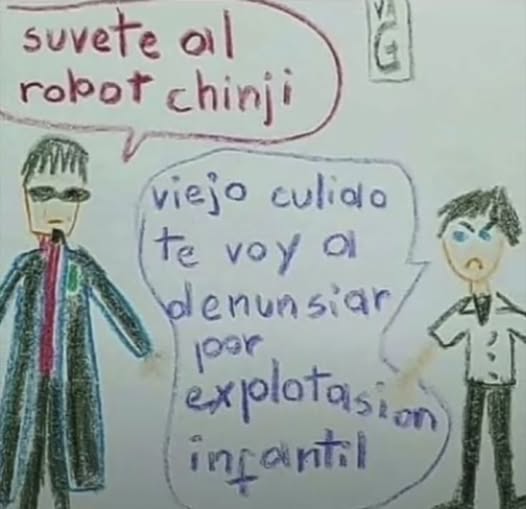 suvete al
robot chinji
G
viejo culiao
te voy a
denunsiar
por
explotasion
infantil